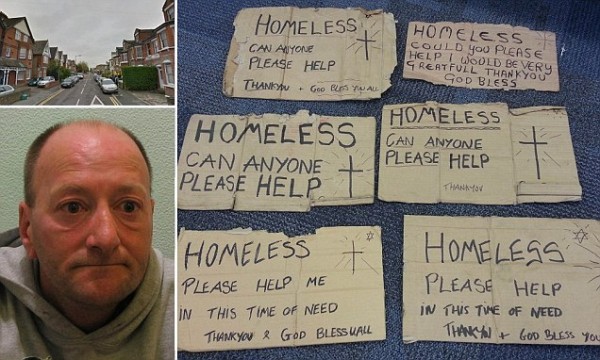 HOMELESS
CAN ANYONE
PLEASE HELP
THANKYOU + GOD BLESS YOU ALL
HOMELESS
COULD YOU PLEASE
HELP I WOULD BE VERY
GREATFULL THANKYOU
GOD BLESS
HOMELESS
CAN ANYONE
PLEASE HELP
HOMELESS
CAN ANYONE
PLEASE HELP
THANKYOU
HOMELESS
PLEASE HELP ME
IN THIS TIME OF NEED
THANKYOU & GOD BLESS UALL
HOMELESS
PLEASE HELP
IN THIS TIME OF NEED
THANKYOU + GOD BLESS YOU